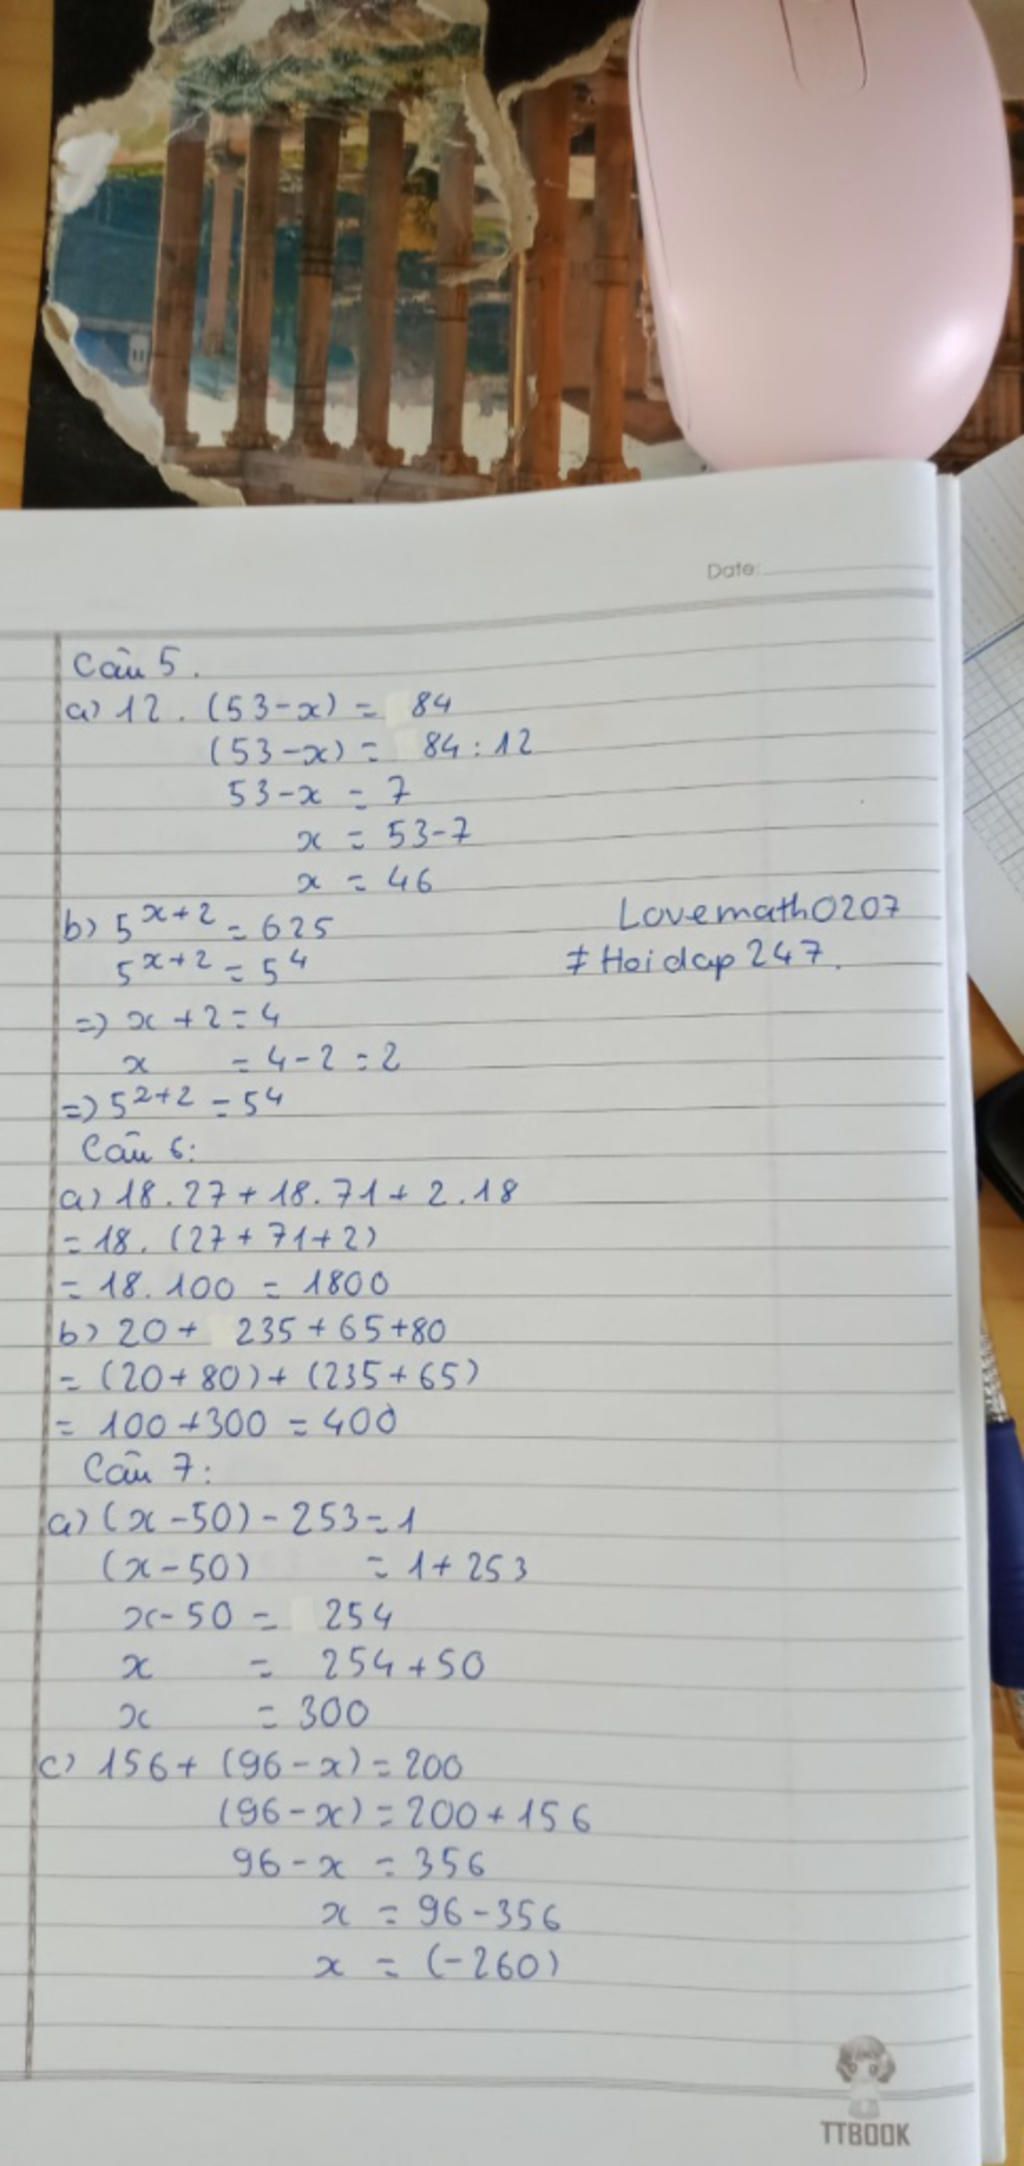 Date:
Câu 5.
a) 12 . (53-x) = 84
(53-x) = 84 : 12
53-x = 7
x = 53-7
x = 46
b) 5^x+2 = 625
Lovemath0207
5^x+2 = 5^4
# Hoidap 247.
=> x + 2 = 4
x = 4 - 2 = 2
=> 5^2+2 = 5^4
Câu 6:
a) 18.27 + 18.71 + 2.18
= 18. (27 + 71+2)
= 18. 100 = 1800
b) 20 + 235 + 65+80
= (20+80) + (235+65)
= 100 +300 = 400
Câu 7:
a) (x-50) - 253 = 1
(x-50) = 1 + 253
x-50 = 254
x = 254 +50
x = 300
c) 156+ (96-x) = 200
(96-x) = 200 + 156
96-x = 356
x = 96-356
x = (-260)
TTBOOK